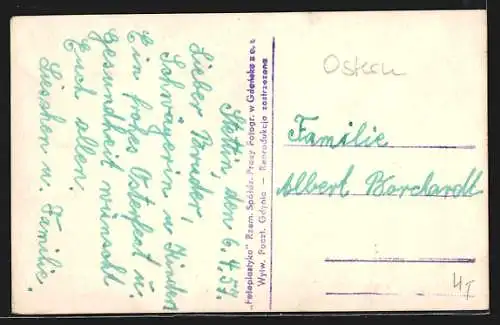 Stettin, den 6.4.57.
Lieber Bruder,
Schwägerin u. Kinder
Ein frohes Osterfest u.
Gesundheit wünscht
Euch allen
Lieschen u. Familie.
"Fotoplastyka" Rzem. Spółdz. Pracy Fotogr. w Gdańsku z o. o.
Wytw. Poczt. Gdynia — Reprodukcja zastrzeżona
Ostern
Familie
Albert Borchardt